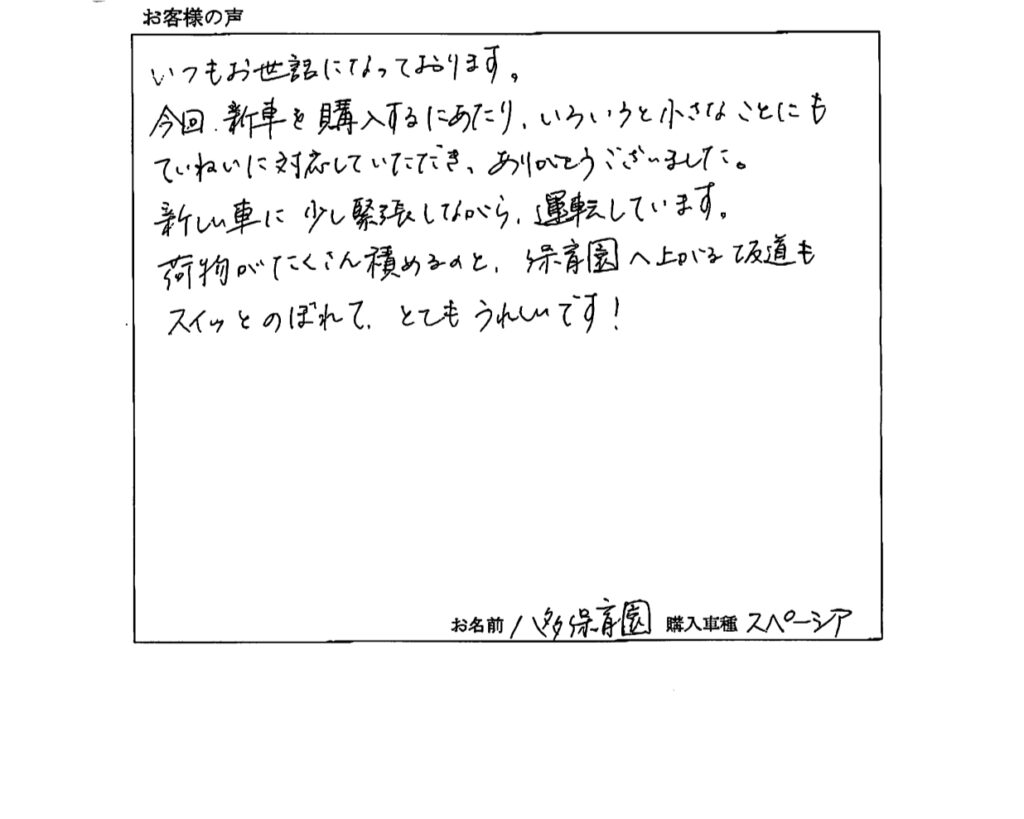 お客様の声
いつもお世話になっております。
今回、新車を購入するにあたり、いろいろと小さなことにも
ていねいに対応していただき、ありがとうございました。
新しい車に少し緊張しながら、運転しています。
荷物がたくさん積めるのと、保育園へ上がる坂道も
スイッとのぼれて、とてもうれしいです！
お名前 八多保育園 購入車種 スペーシア